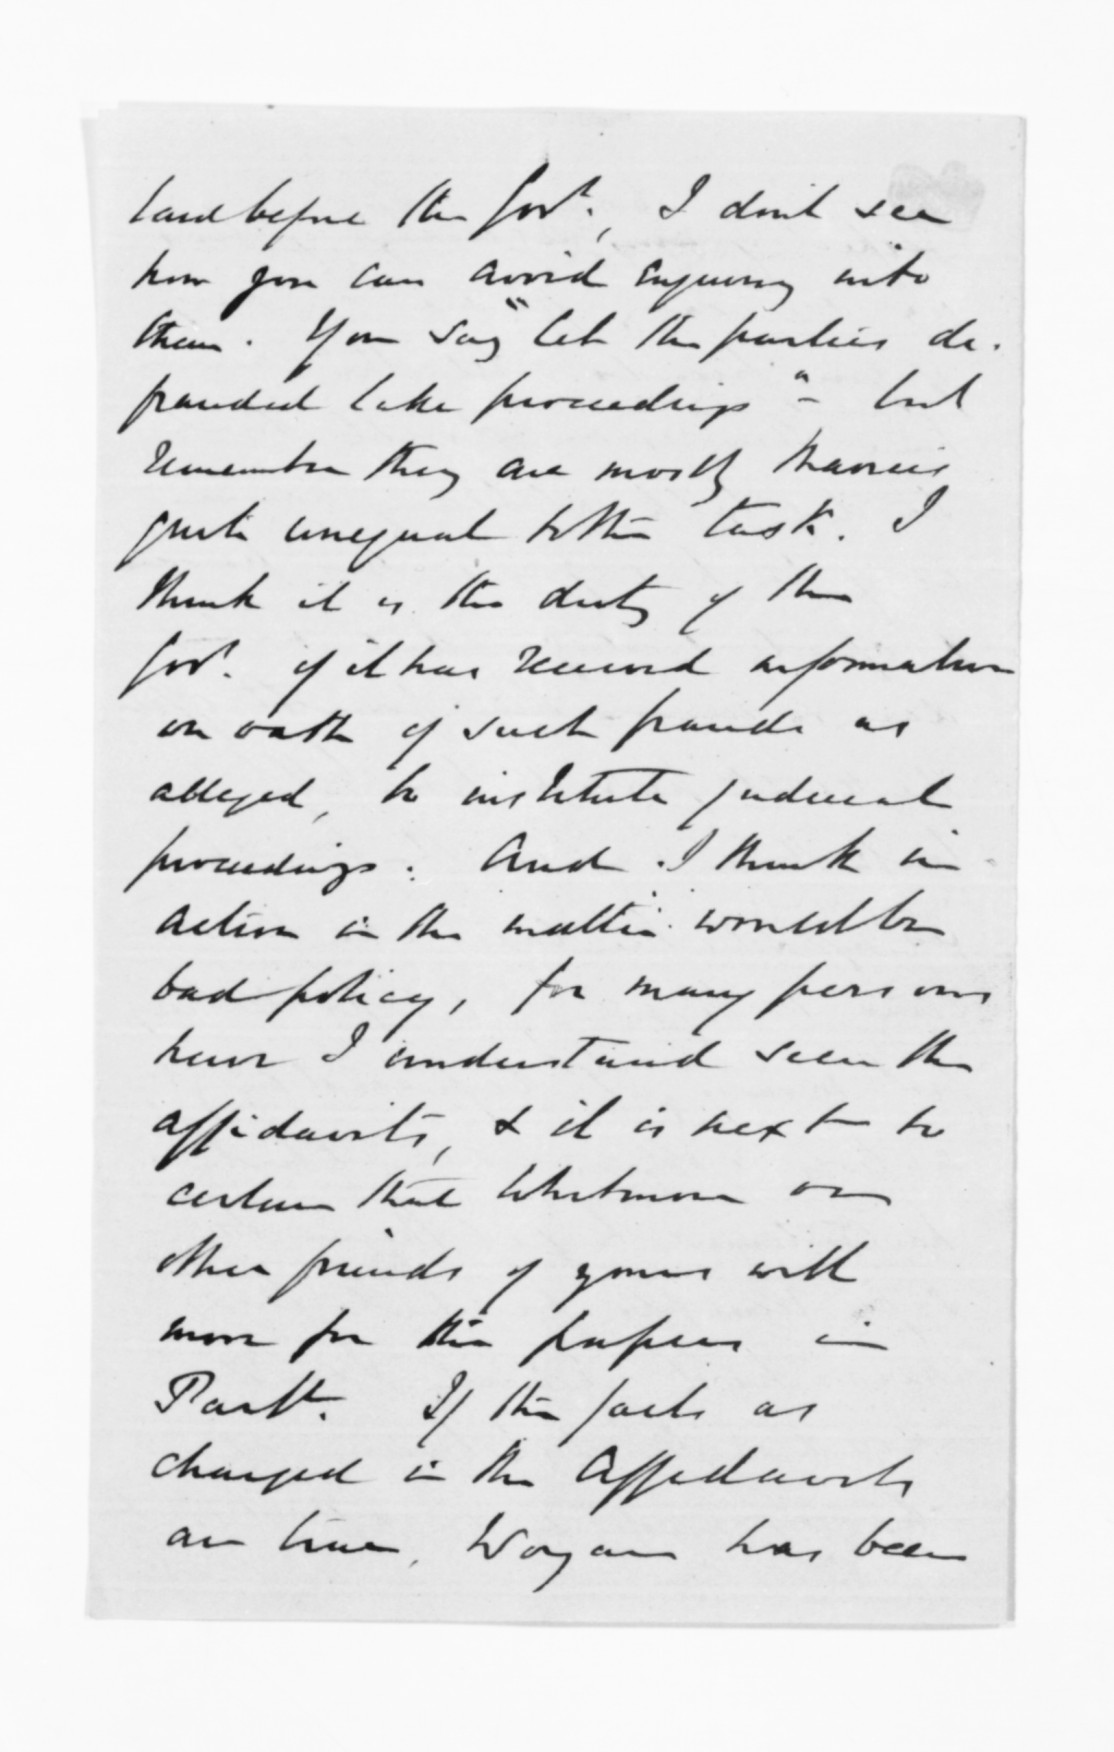 laid before the Govt., I don't see
how you can avoid enquiring into
them. You say "let the parties de-
frauded take proceedings" - but
remember they are mostly Maories
quite unequal to the task. I
think it is the duty of the
Govt. if it has received information
on oath of such frauds as
alleged, to institute judicial
proceedings. And I think in
action in the matter would be
bad policy, for many persons
have I understand seen the
affidavits, & it is next to
certain that Whitmore or
other friends of yours will
move for the papers in
Parlt. If the facts as
charged in the Affidavits
are true, Worgan has been